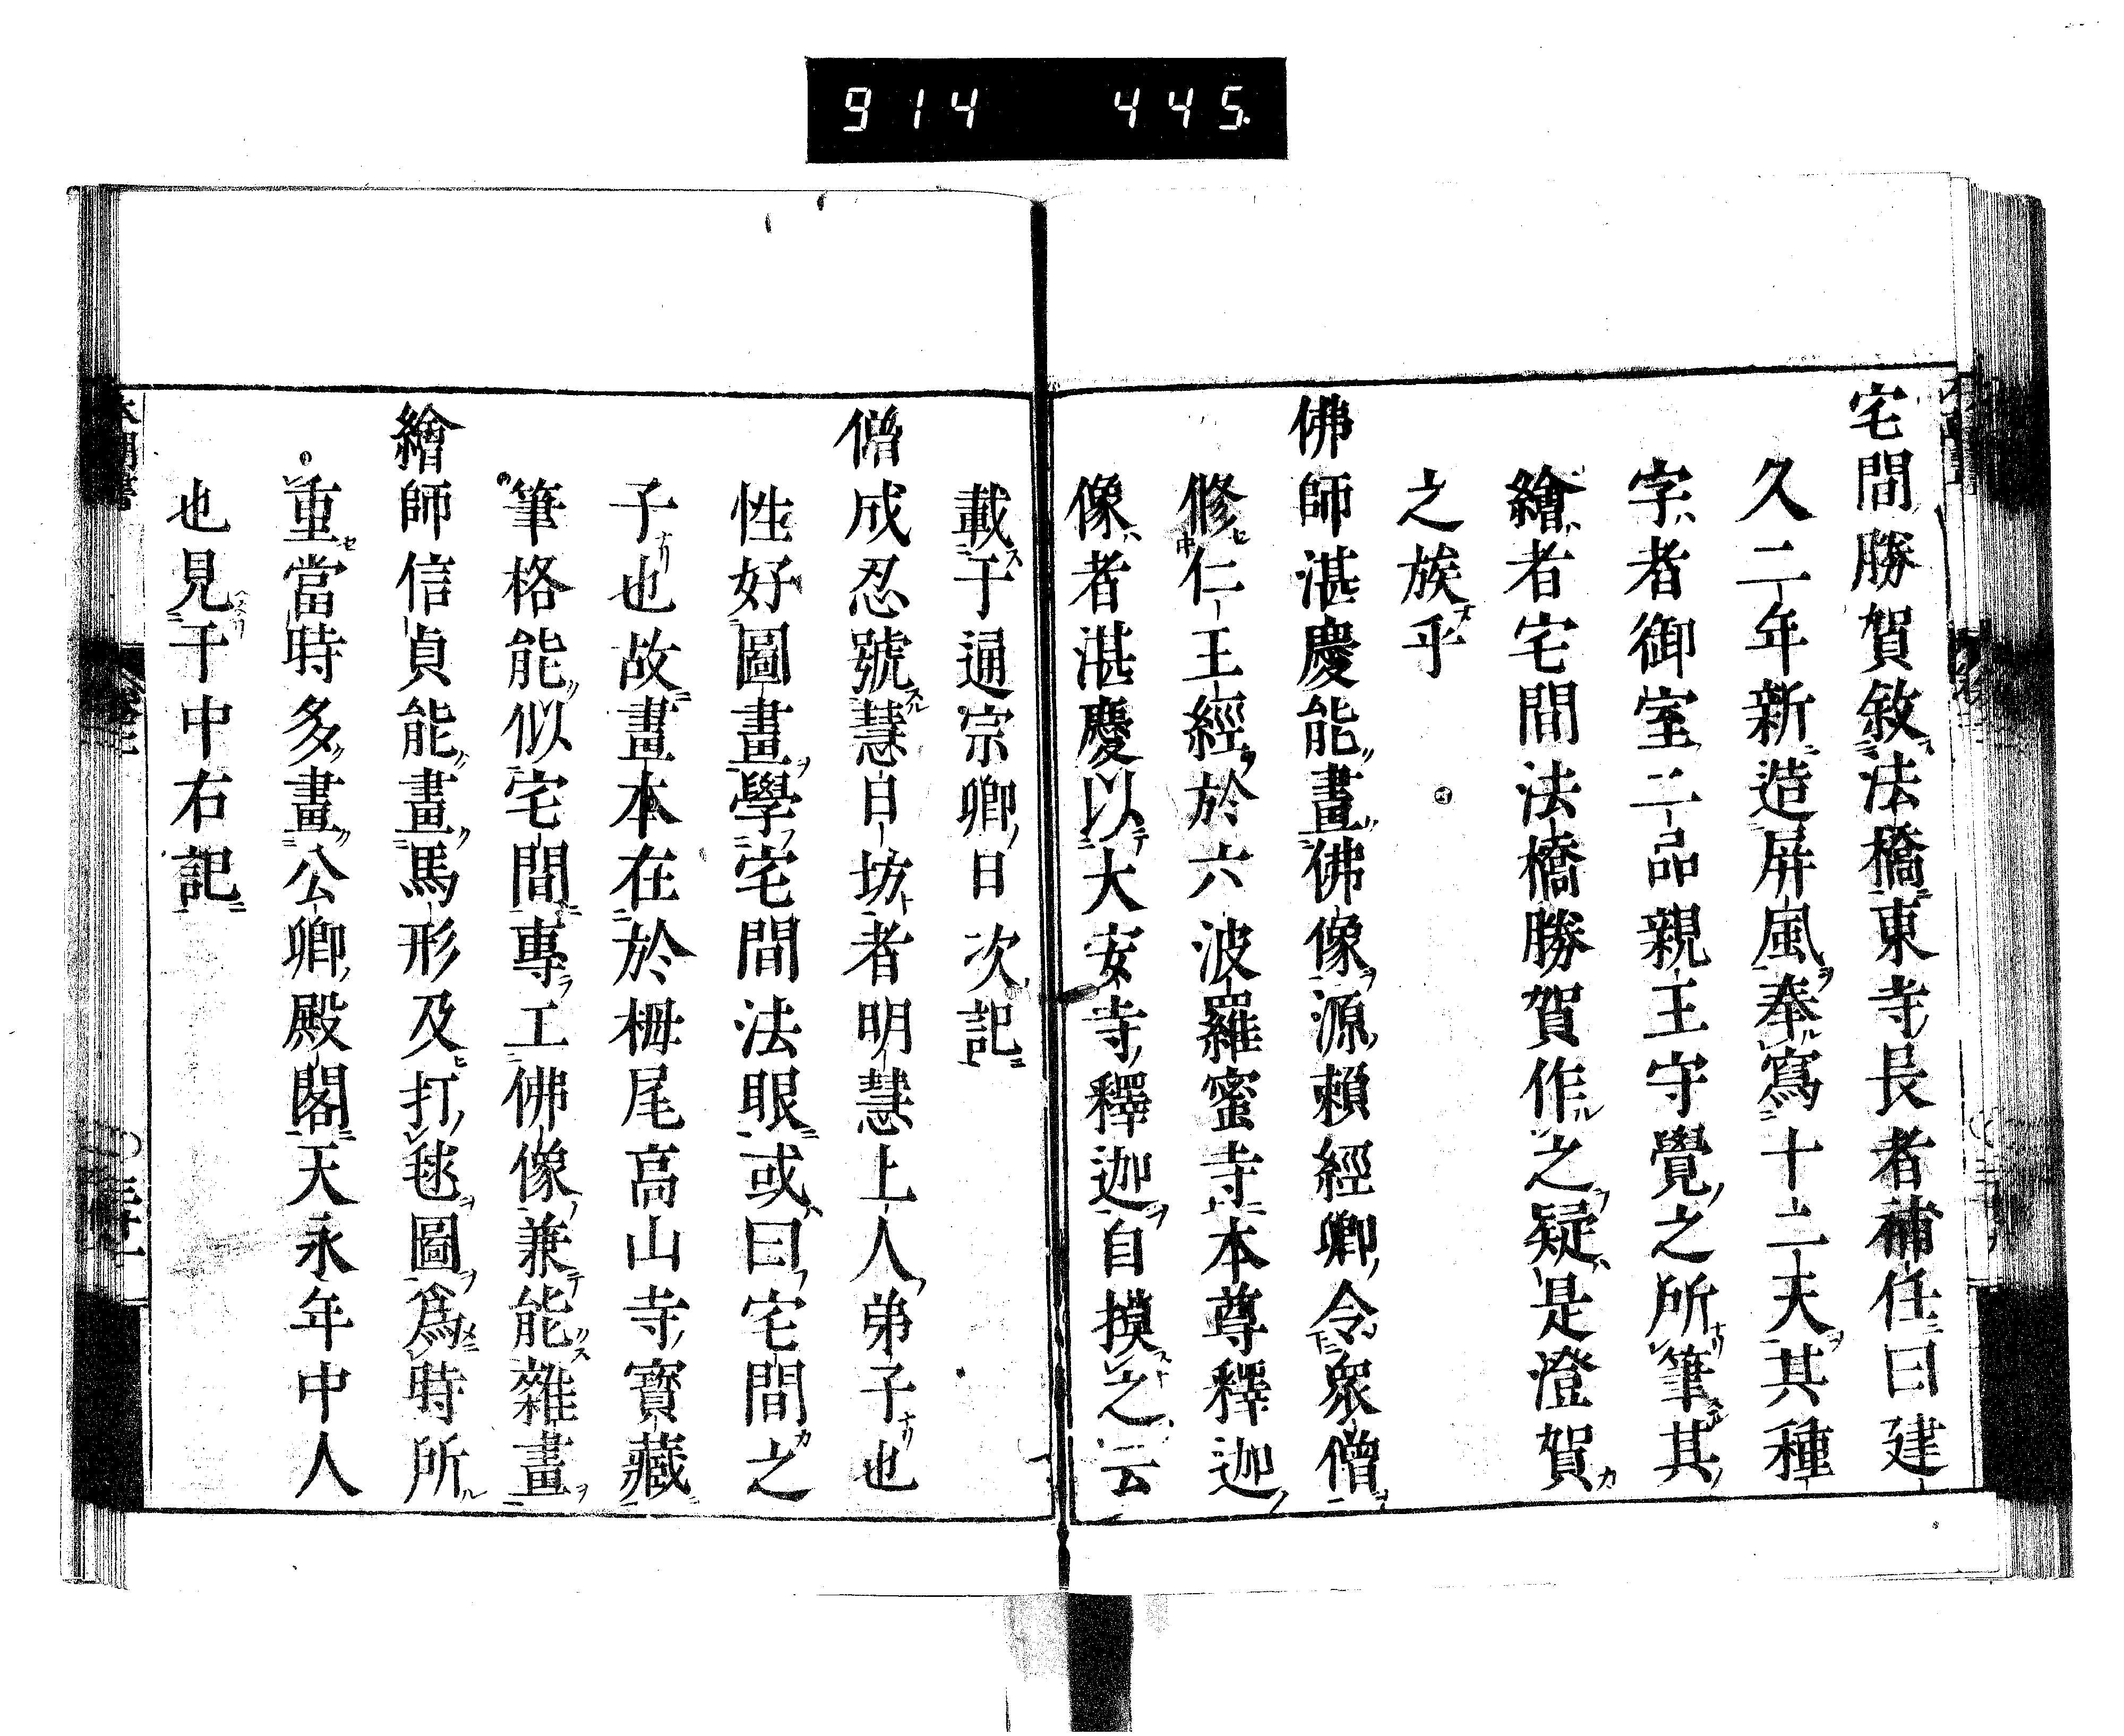 914 445.
宅間勝賀敘法橋東寺長者補任曰建
久二年新造屏風奉寫十二天其種
字者御室二品親王守覺之所筆其
繪者宅間法橋勝賀作之疑是澄賀
之族乎
佛師湛慶能畫佛像源賴經卿令衆僧
修仁王經於六波羅蜜寺本尊釋迦
像者湛慶以大安寺釋迦自摸之云
載于通宗卿日次記
僧成忍號慧日坊者明慧上人弟子也
性好圖畫學宅間法眼或曰宅間之
子也故畫本在於栂尾高山寺寶藏
筆格能似宅間專工佛像兼能雜畫
繪師信貞能畫馬形及打毬圖爲時所
重當時多畫公卿殿閣天永年中人
也見于中右記